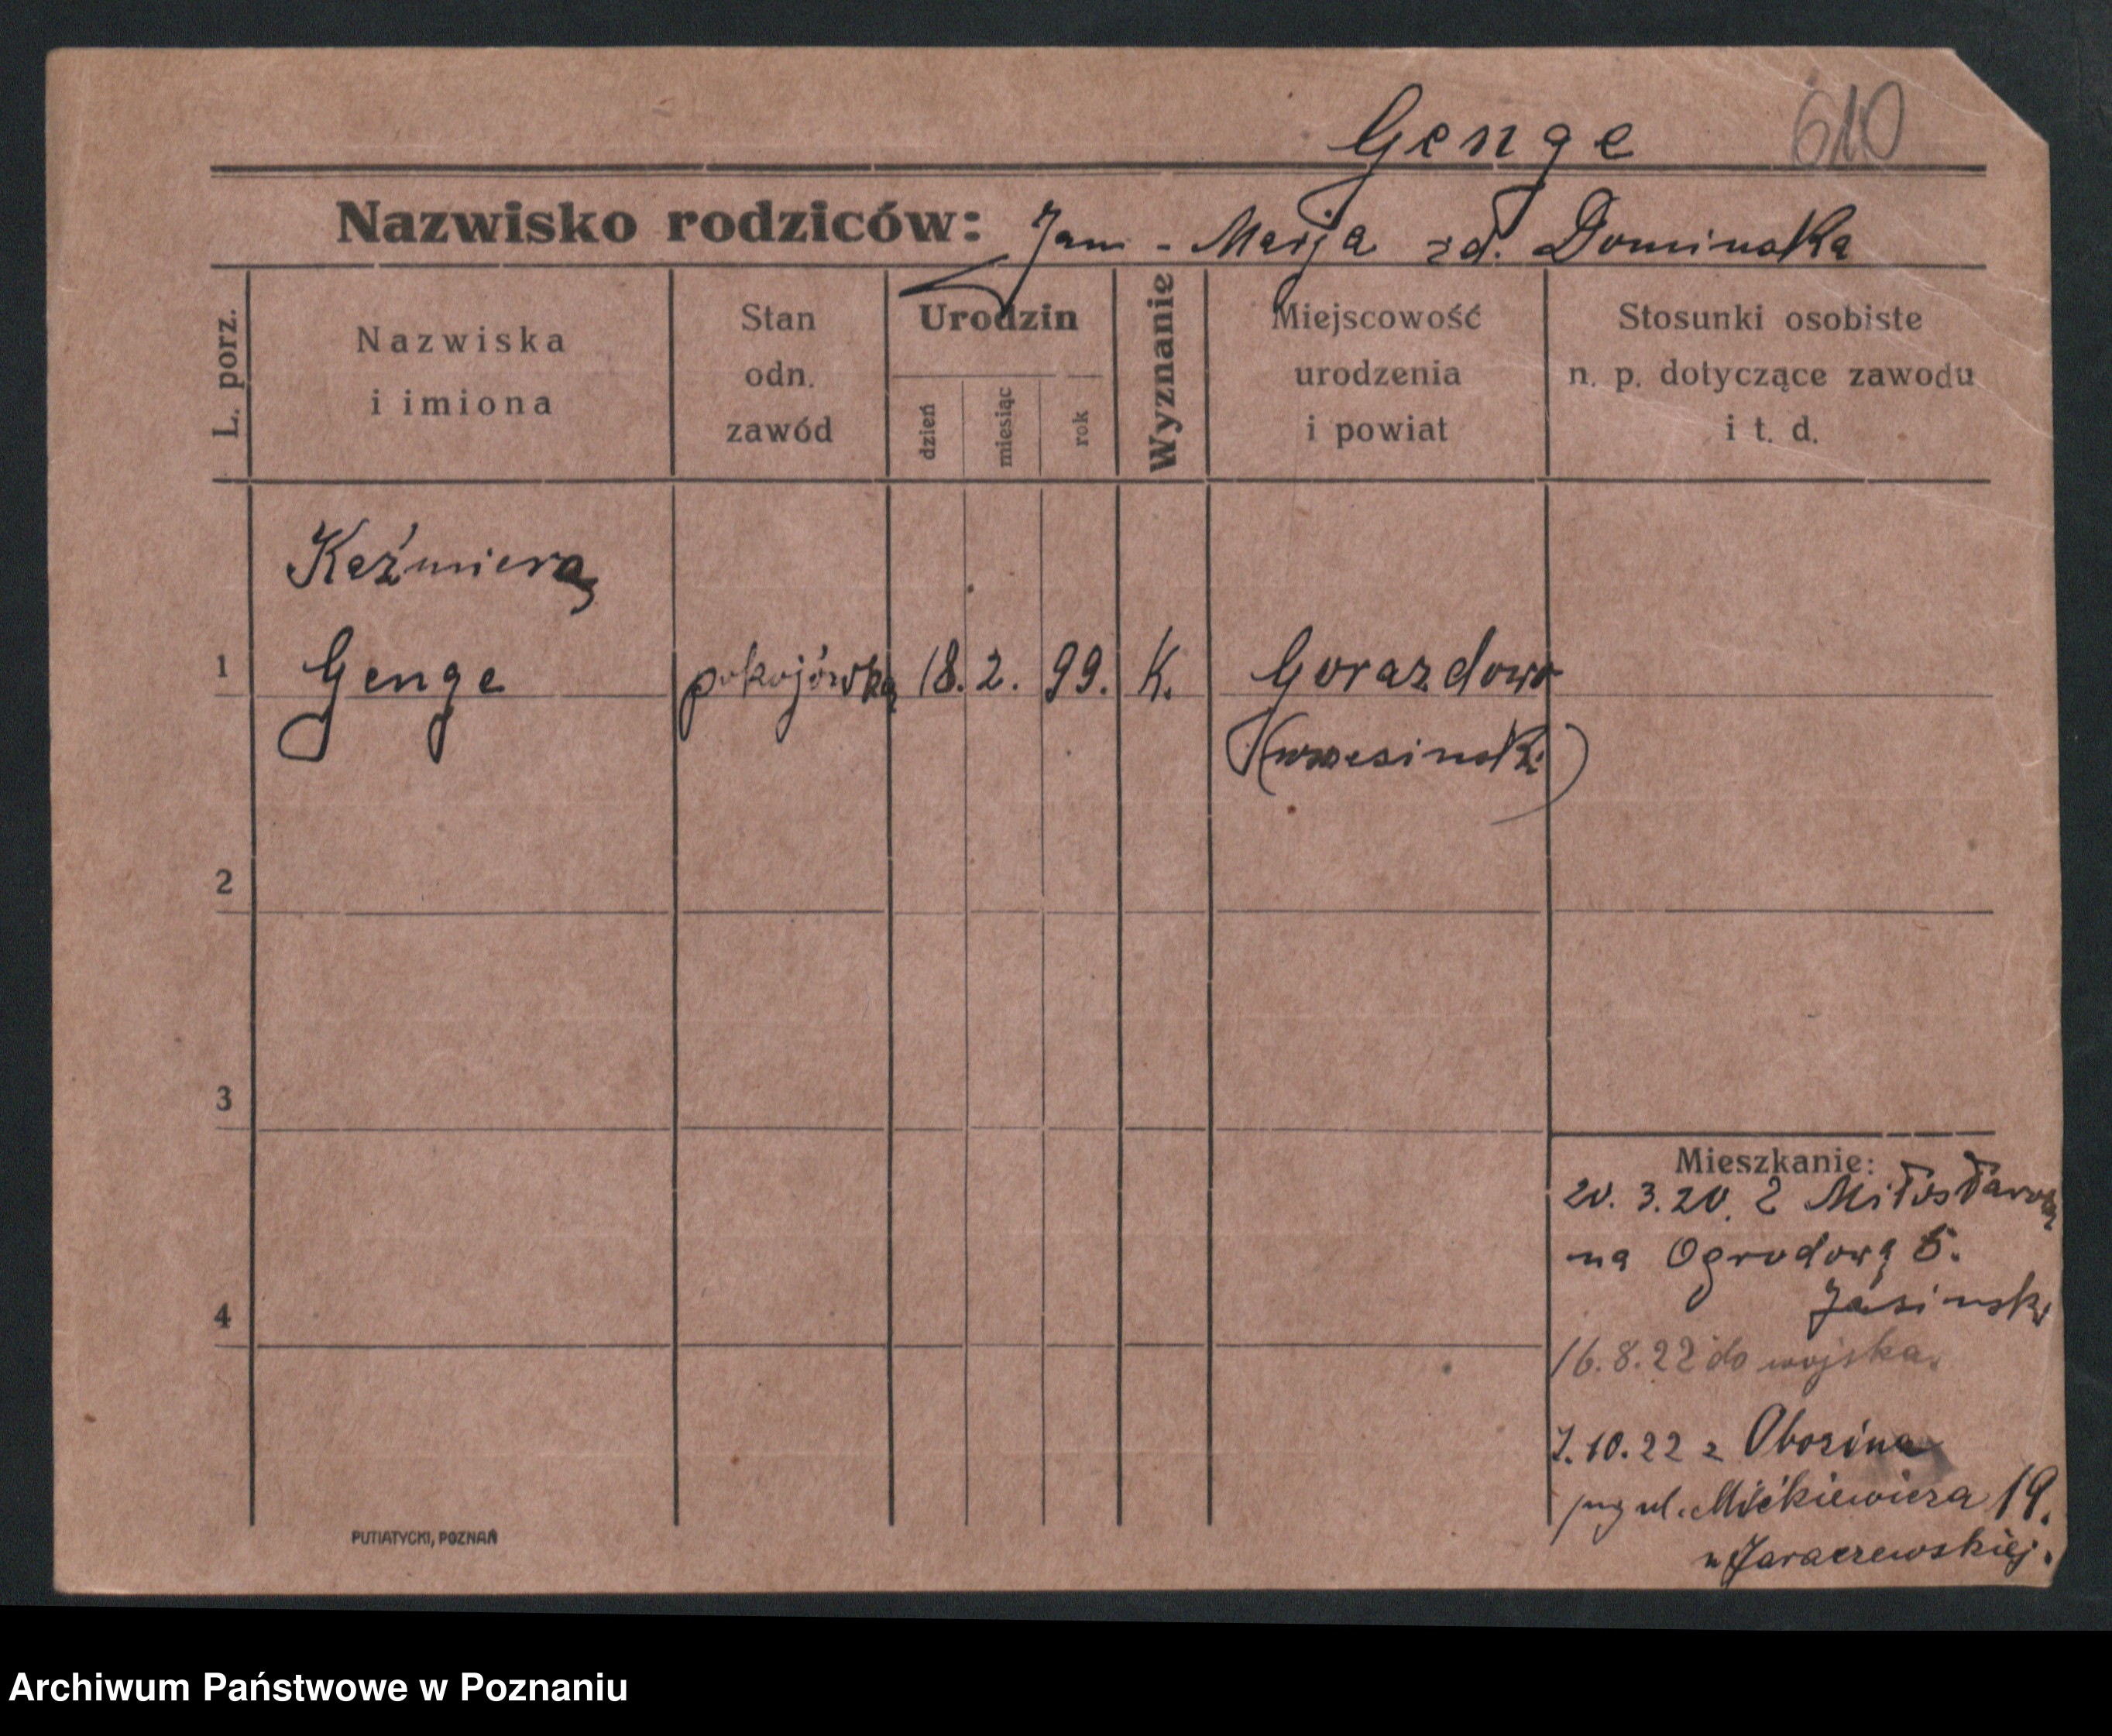 Genge 610
Nazwisko rodziców: Jan - Marja zd. Dominska
L. porz.
Nazwiska
i imiona
Stan
odn.
zawód
Urodzin
dzień
miesiąc
rok
Wyznanie
Miejscowość
urodzenia
i powiat
Stosunki osobiste
n. p. dotyczące zawodu
i t. d.
Kaźmiera
1 Genge pokojówka 18. 2. 99. K. Gorazdowo
(wrzesinski)
2
3
4
Mieszkanie:
20. 3. 20. z Miłosławia
na Ogrodową 5.
Jasinski
16. 8. 22 do wojska.
7. 10. 22 z
ul. Mickiewicza 19.
u Jaraczewskiej.
PUTIATYCKI, POZNAŃ
Archiwum Państwowe w Poznaniu